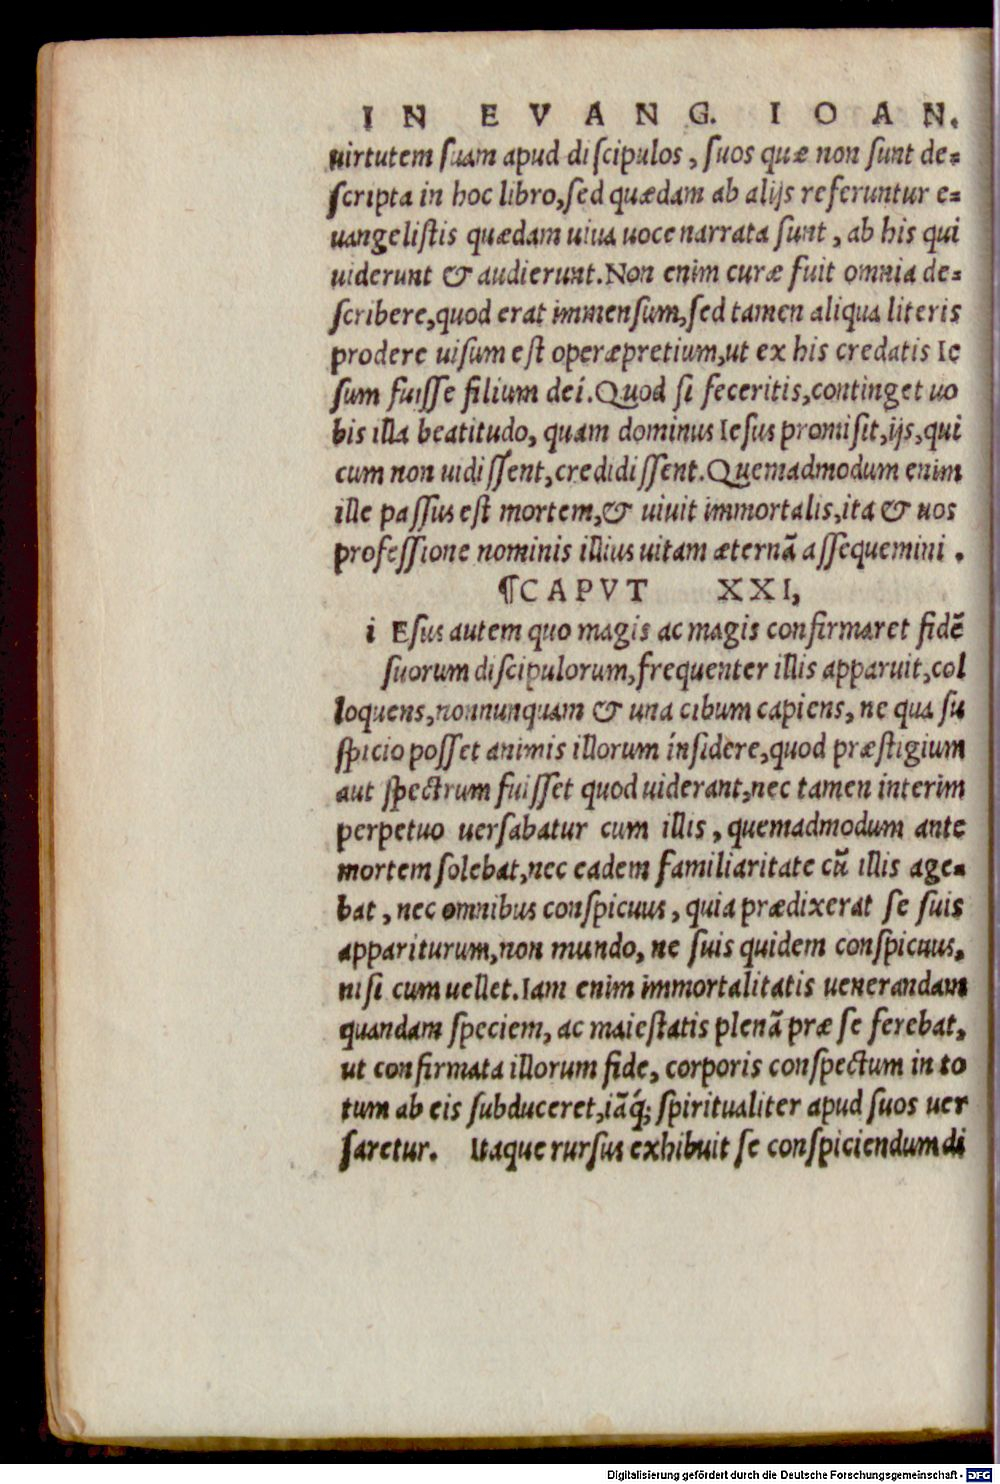 IN EVANG. IOAN.
uirtutem ſuam apud diſcipulos, ſuos quæ non ſunt de=
ſcripta in hoc libro, ſed quædam ab alijs referuntur e=
uangeliſtis quædam uiua uoce narrata ſunt, ab his qui
uiderunt & audierunt. Non enim curæ fuit omnia de=
ſcribere, quod erat immenſum, ſed tamen aliqua literis
prodere uiſum eſt operæpretium, ut ex his credatis Ie
ſum fuiſſe filium dei. Quod ſi feceritis, continget uo
bis illa beatitudo, quam dominus Ieſus promiſit, ijs, qui
cum non uidiſſent, credidiſſent. Quemadmodum enim
ille paſſus eſt mortem, & uiuit immortalis, ita & uos
profeſſione nominis illius uitam æternā aſſequemini.
¶CAPVT XXI,
i Eſus autem quo magis ac magis confirmaret fidē
ſuorum diſcipulorum, frequenter illis apparuit, col
loquens, nonnunquam & una cibum capiens, ne qua ſu
ſpicio poſſet animis illorum inſidere, quod præſtigium
aut ſpectrum fuiſſet quod uiderant, nec tamen interim
perpetuo uerſabatur cum illis, quemadmodum ante
mortem ſolebat, nec eadem familiaritate cū illis age=
bat, nec omnibus conſpicuus, quia prædixerat ſe ſuis
appariturum, non mundo, ne ſuis quidem conſpicuus,
niſi cum uellet. Iam enim immortalitatis uenerandam
quandam ſpeciem, ac maieſtatis plenā præ ſe ferebat,
ut confirmata illorum fide, corporis conſpectum in to
tum ab eis ſubduceret, iāq́; ſpiritualiter apud ſuos uer
ſaretur. Itaque rurſus exhibuit ſe conſpiciendum di
Digitalisierung gefördert durch die Deutsche Forschungsgemeinschaft - DFG